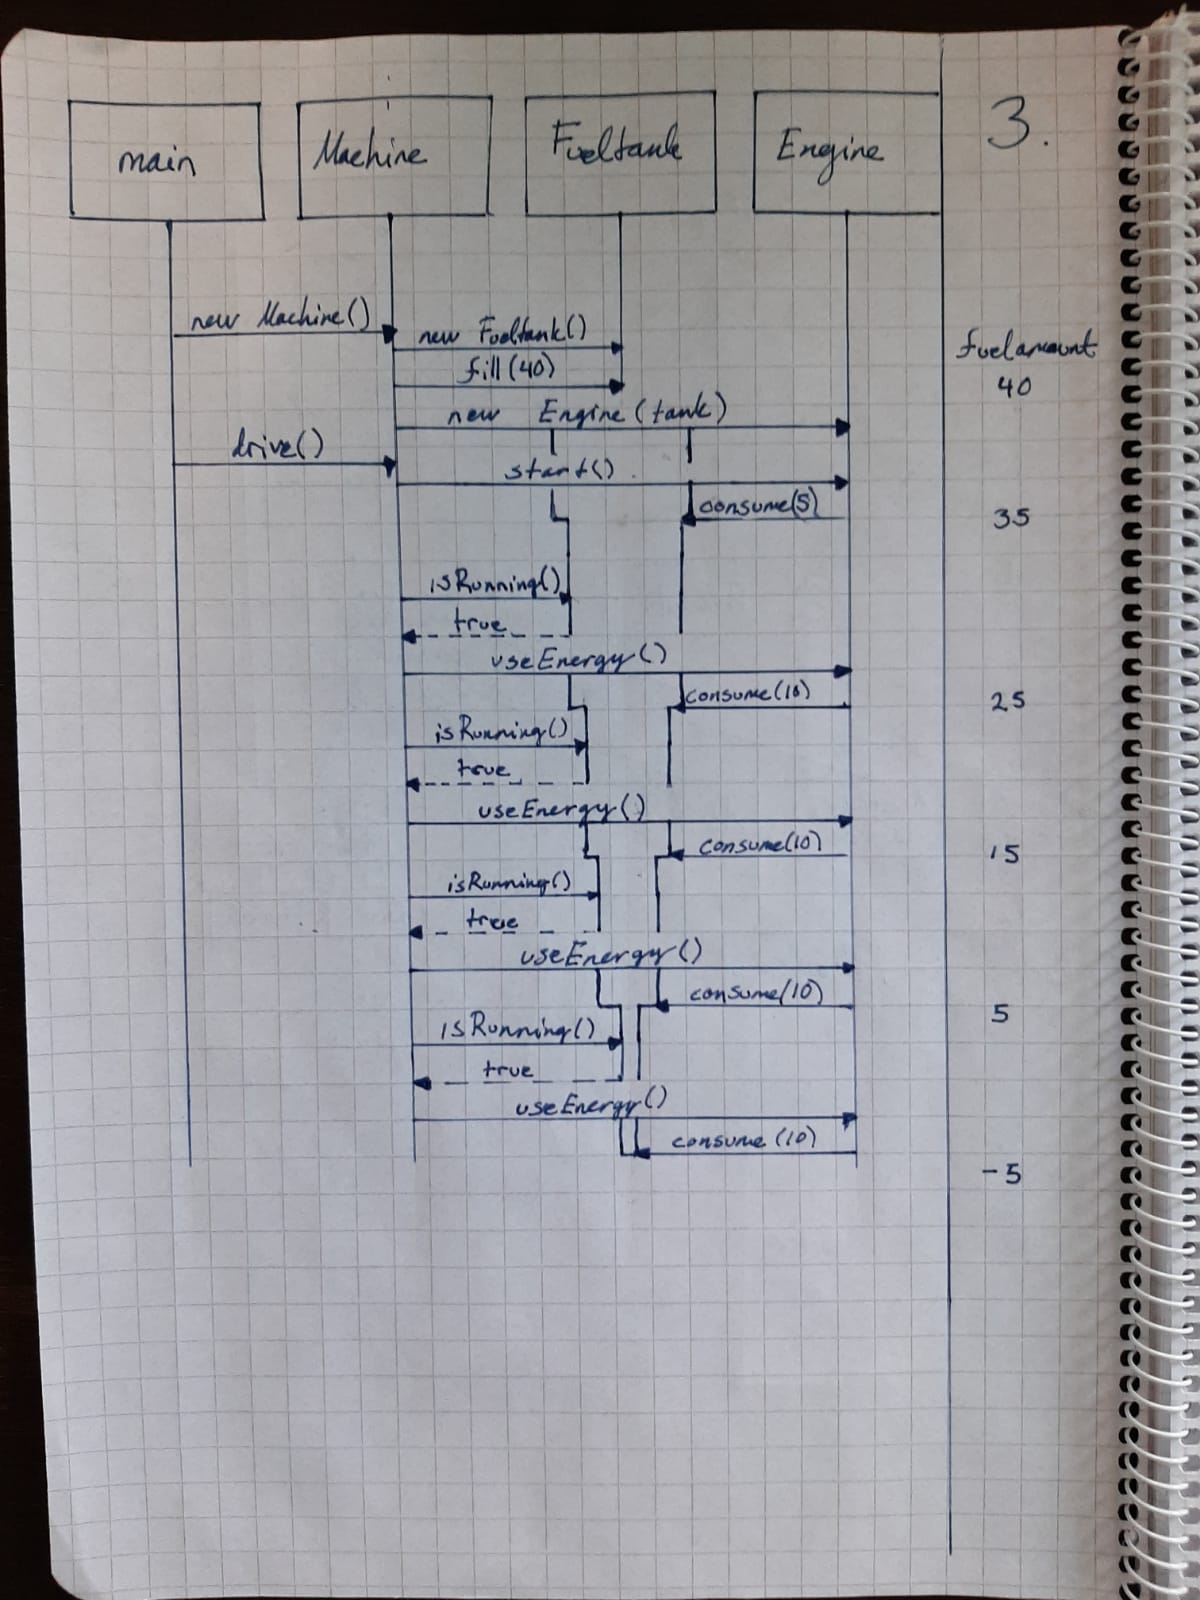 3.
main Machine Fueltank Engine
new Machine()
new Fueltank()
fuelamount
fill(40)
40
new Engine(tank)
drive()
start()
consume(5)
35
isRunning()
true
useEnergy()
consume(10)
25
isRunning()
true
useEnergy()
consume(10)
15
isRunning()
true
useEnergy()
consume(10)
5
isRunning()
true
useEnergy()
consume(10)
-5